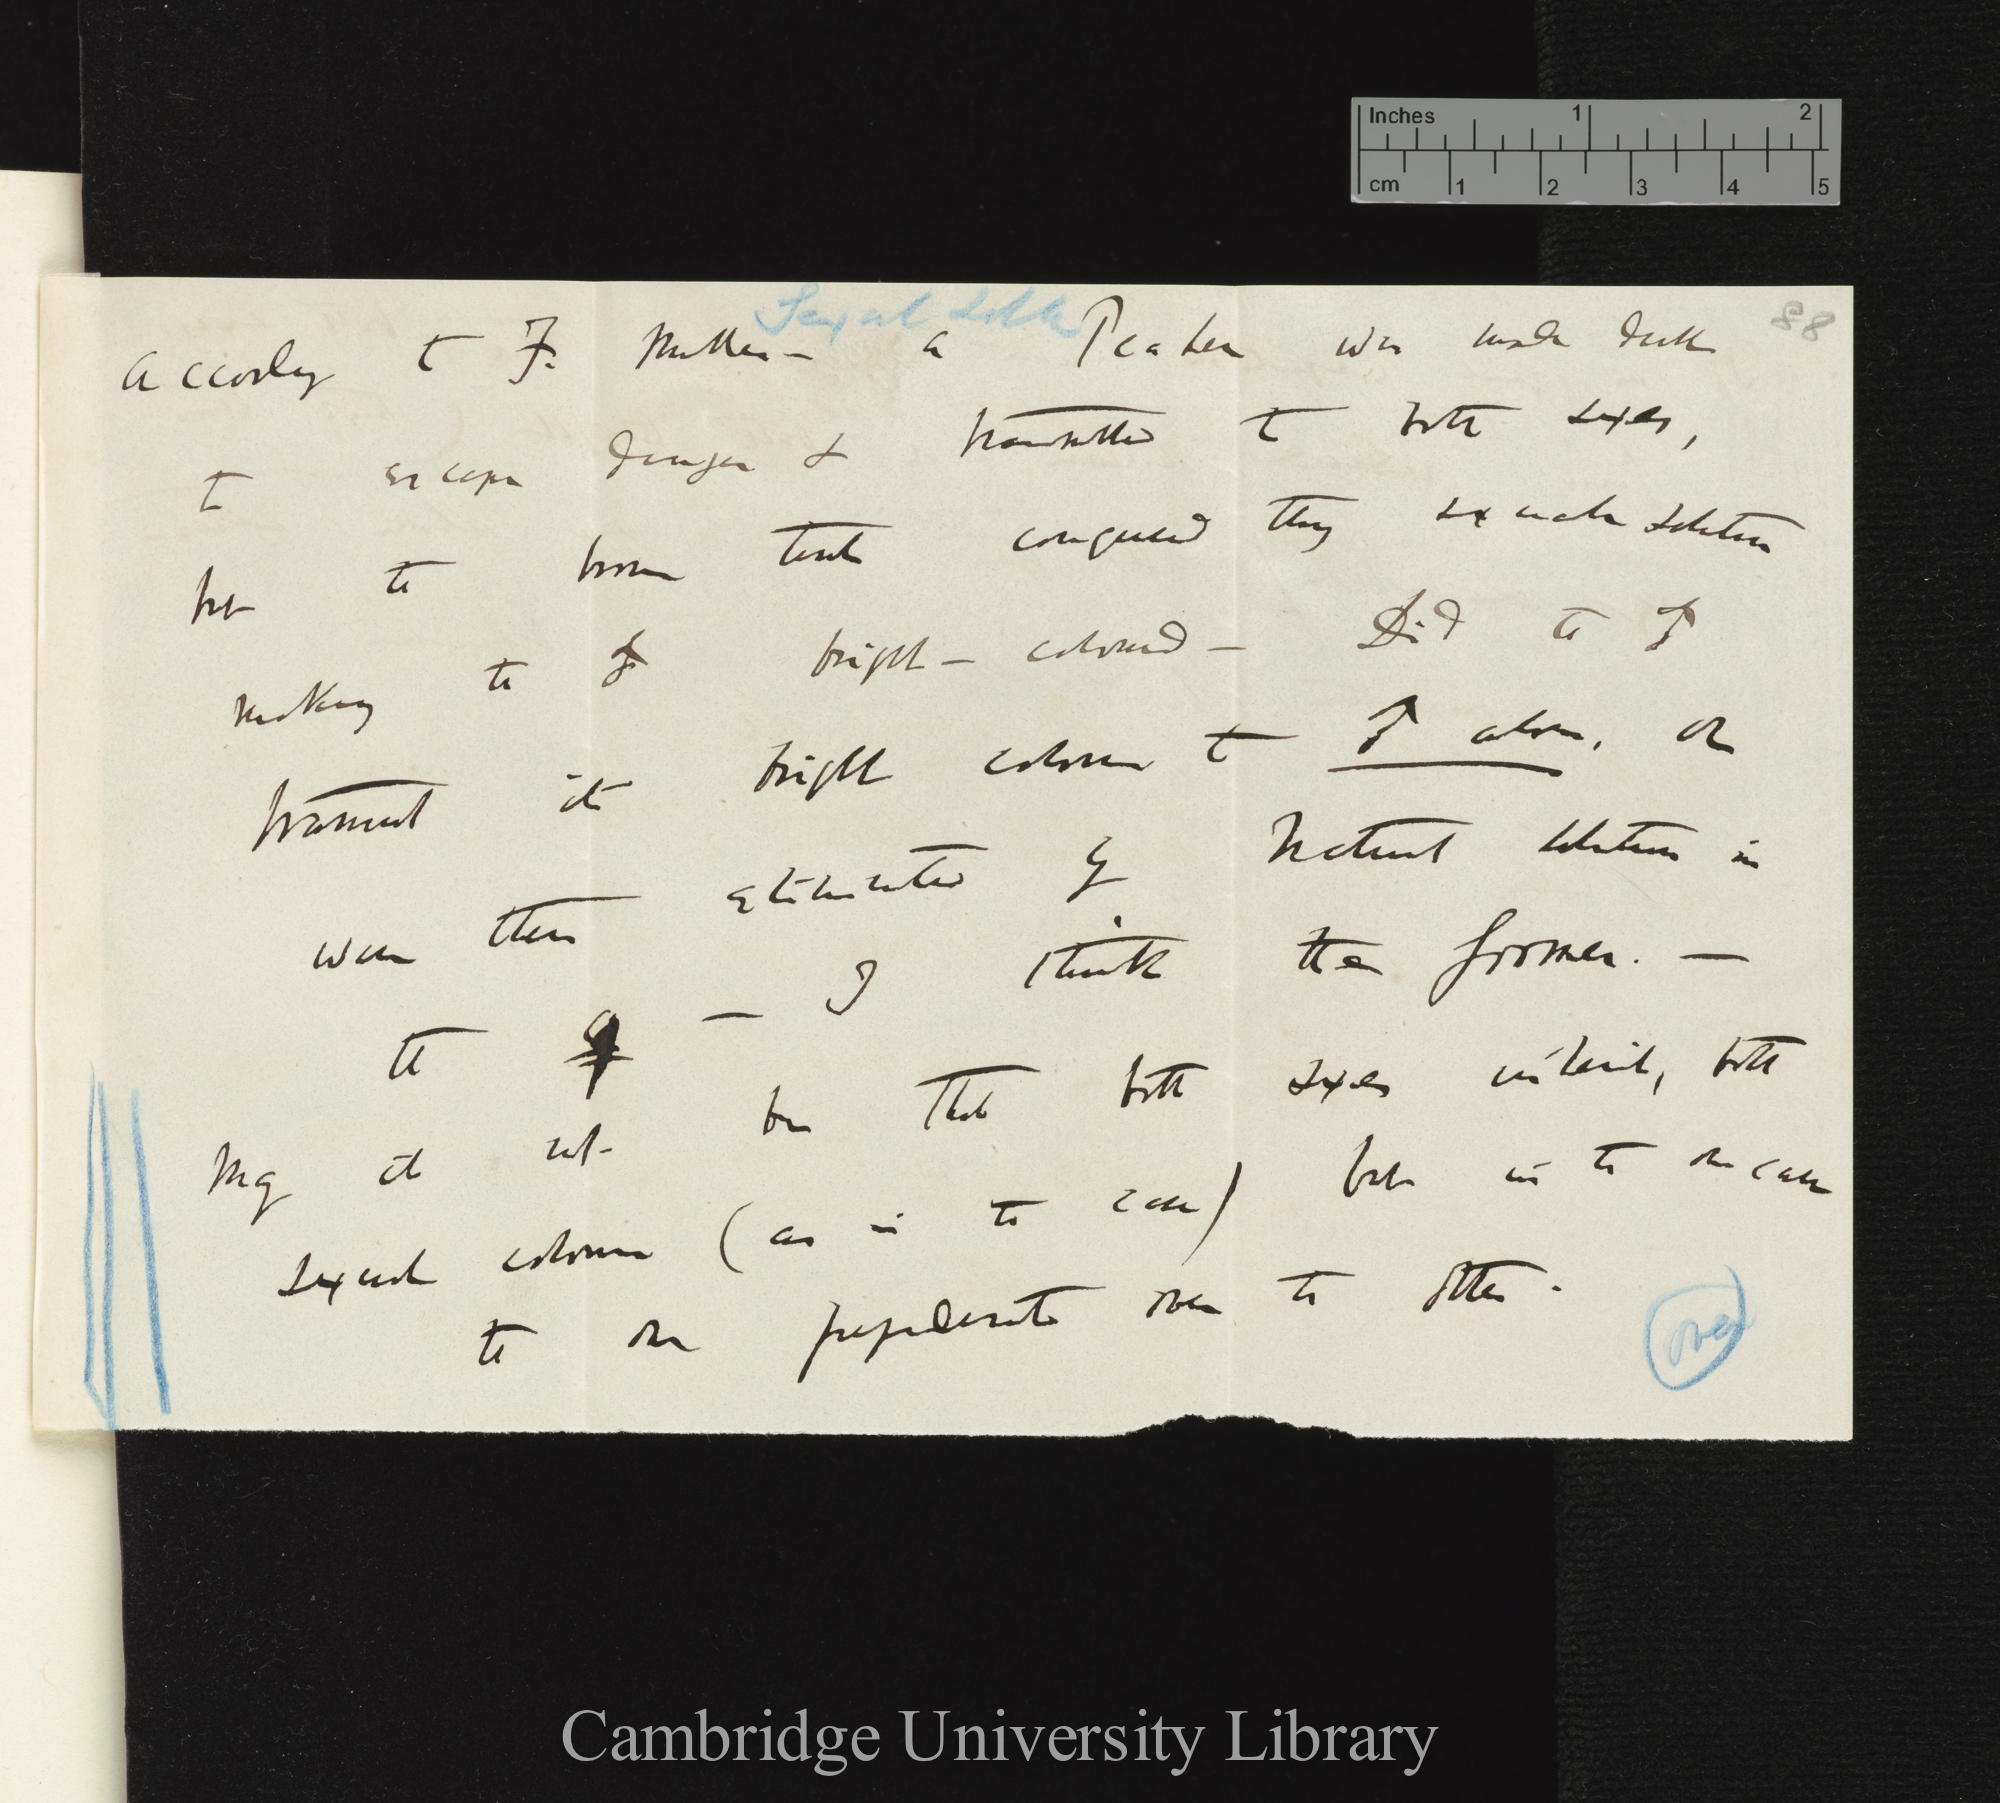 Inches 1 2
cm 1 2 3 4 5
88
Sexual Selectn
According to F. Muller — a was made dull
to escape danger & transmitted to both sexes,
but the brown tint conquered through sexual selection
making the ♂ bright-coloured — Did the ♂
transmit its bright colours to ♂ alone, or
were these eliminated by Natural selection in
the ♀ — I think the former. —
May it not be that both sexes inherit, both
sexual colours (as in the case) but in the one case
the one preponderates over the other.
over
Cambridge University Library